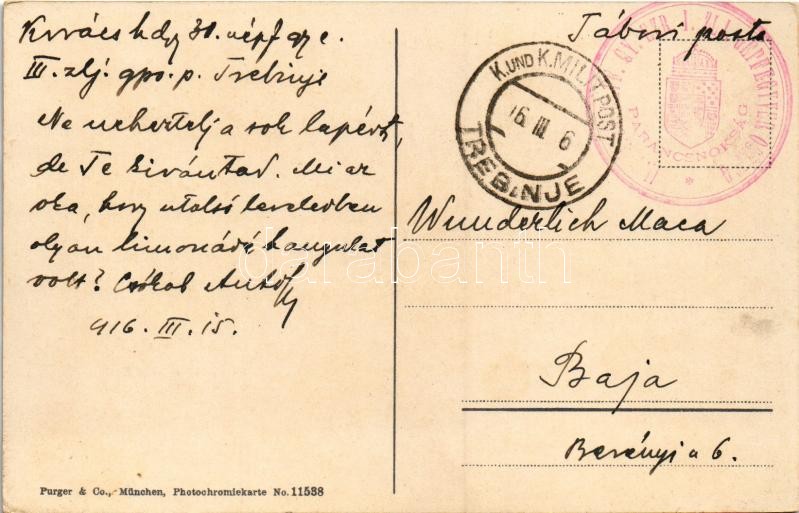 Kovács hdgy 30. népf. gy e.
III. zlj. gpo. p. Trebinje
Ne nehezteljen a sok lapért,
de Te kivántad. Mi az
oka, hogy utolsó leveledben
olyan limonádé hangulat
volt? Csókol Antal
916. III. 15.
Tábori posta
K. UND K. MILIT. POST
16. III. 6
TREBINJE
NÉPFEGYVER
PARANCSNOKSÁG
Wunderlich Maca
Baja
Berényi u 6.
darabanth
Purger & Co., München, Photochromiekarte No. 11538